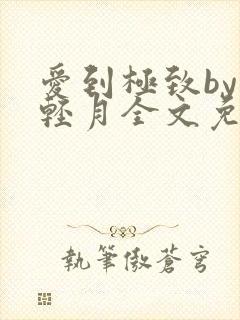 愛到極致by
輕月全文免
執筆傲蒼穹